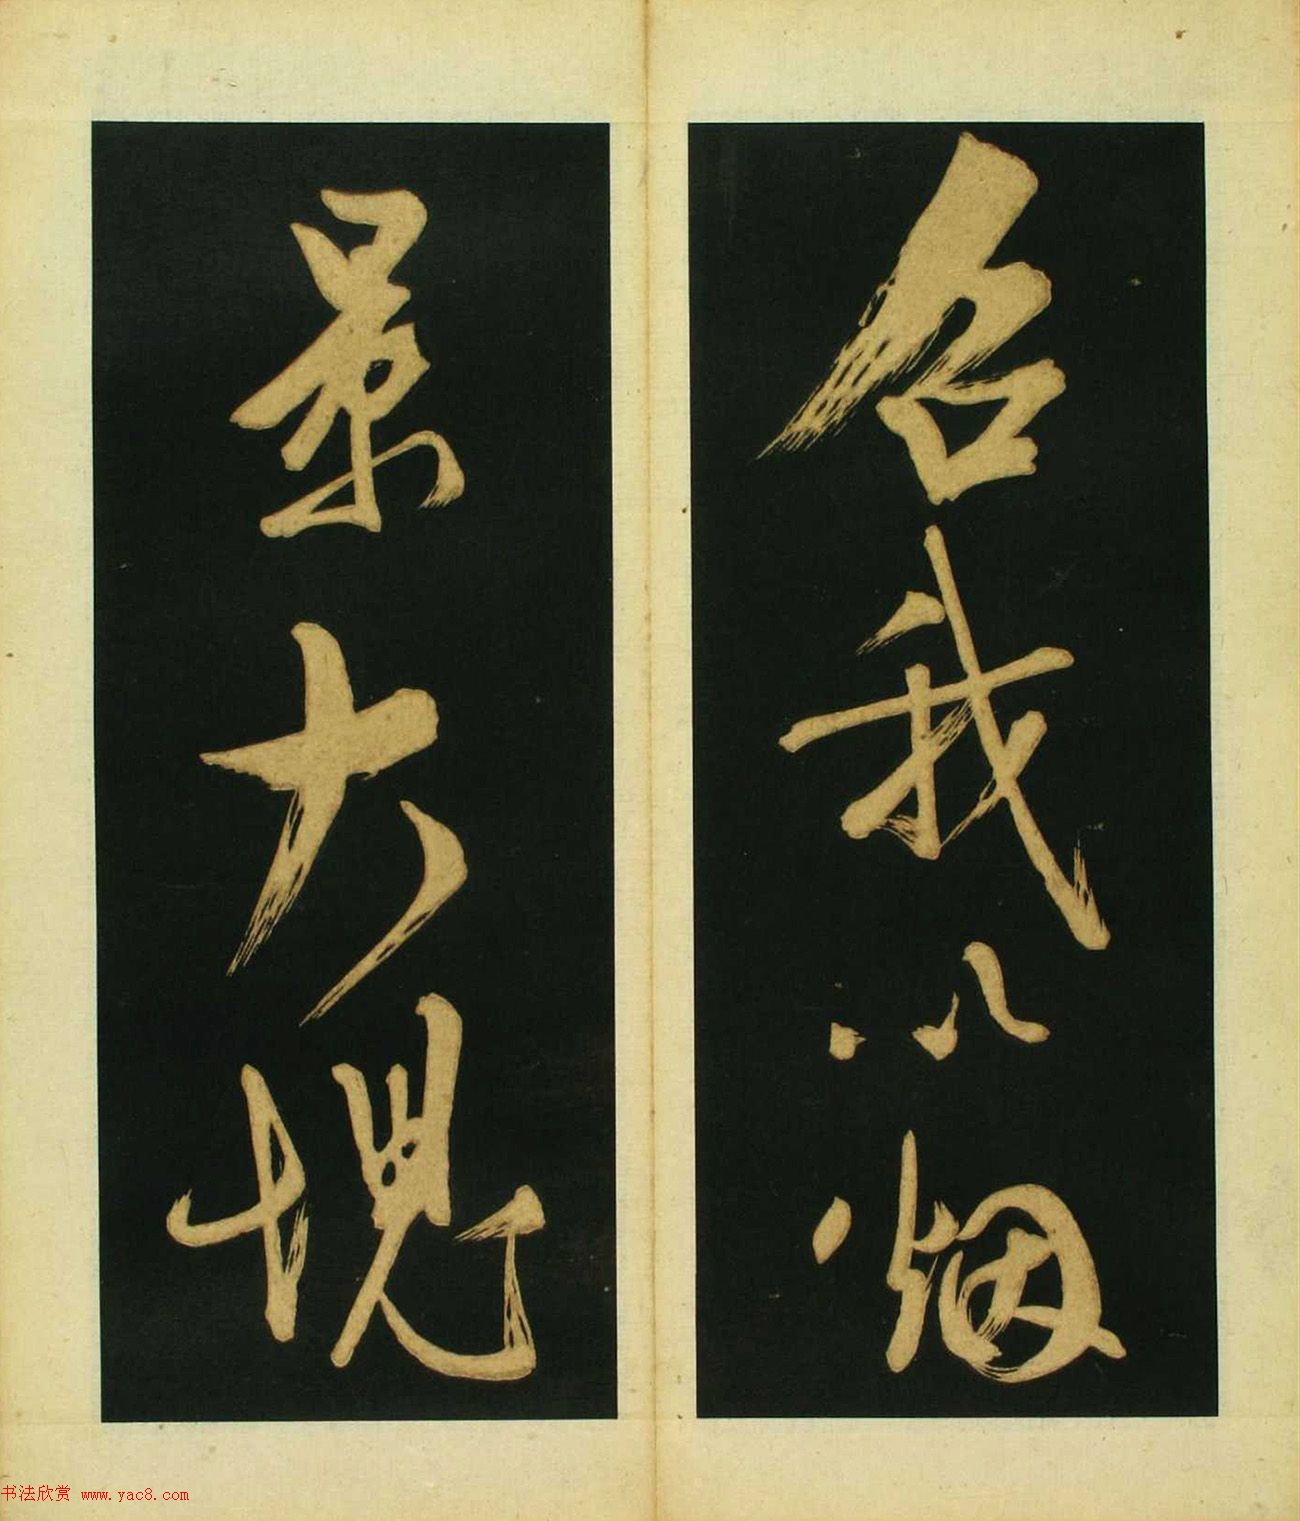 召我以烟
景大块
书法欣赏 www.yac8.com